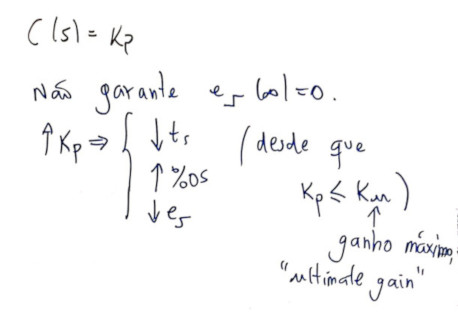 C(s) = Kp
Não garante es(∞)=0.
↑Kp ⇒ { ↓ts (desde que
↑%OS Kp ≤ Ku)
↓es ↑
ganho máximo,
"ultimate gain"